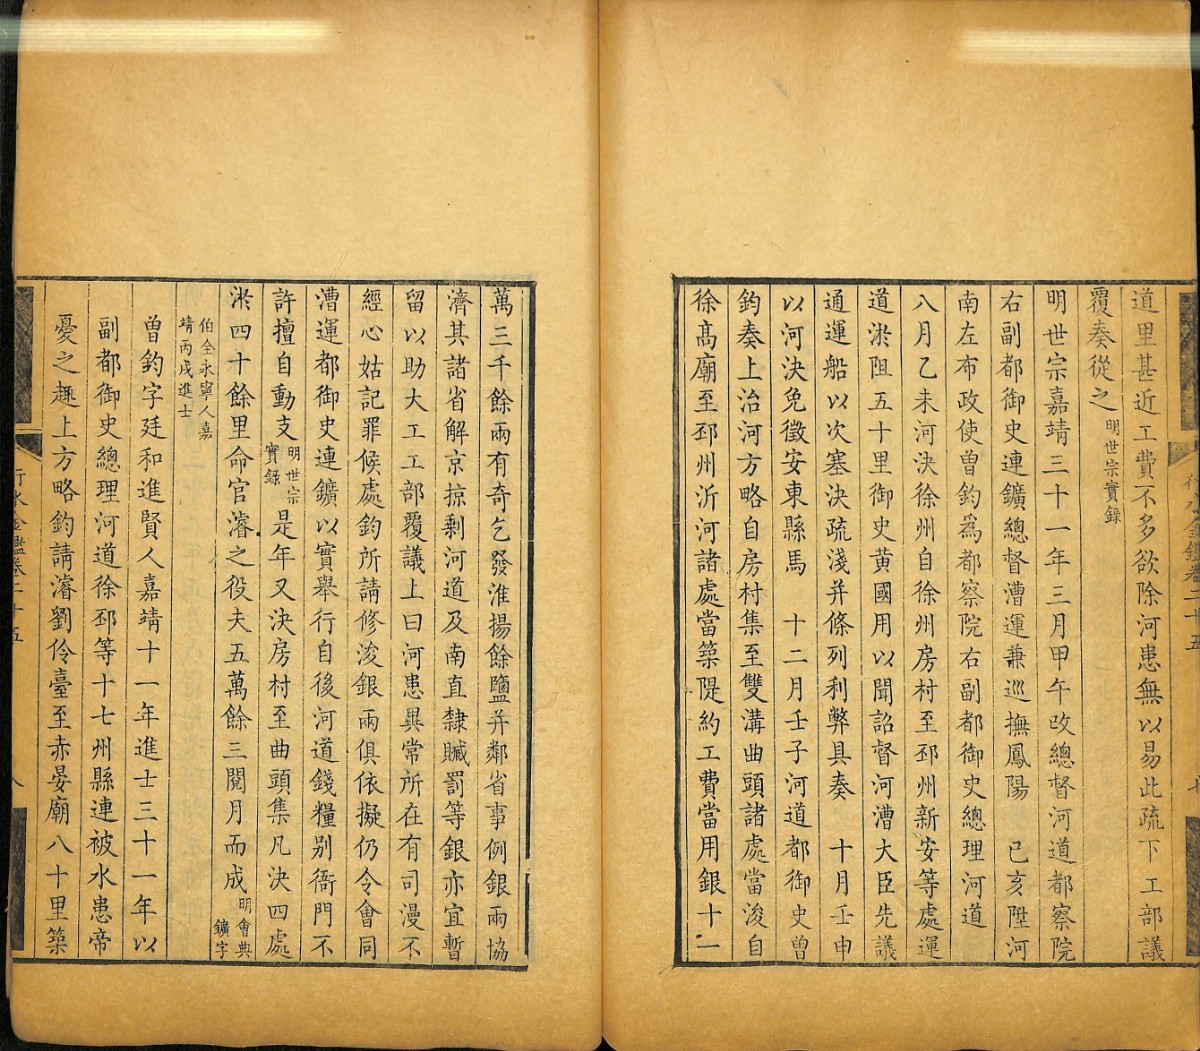 道里甚近工費不多欲除河患無以易此疏下工部議
覆奏從之明世宗實錄
明世宗嘉靖三十一年三月甲午改總督河道都察院
右副都御史連鑛總督漕運兼巡撫鳳陽　已亥陞河
南左布政使曾鈞為都察院右副都御史總理河道
八月乙未河決徐州自徐州房村至邳州新安等處運
道淤阻五十里御史黄國用以聞詔督河漕大臣先議
通運船以次塞決疏淺并條列利弊具奏　十月壬申
以河決免徵安東縣馬　十二月壬子河道都御史曾
鈞奏上治河方略自房村集至雙溝曲頭諸處當浚自
徐高廟至邳州沂河諸處當築隄約工費當用銀十一
行水金鑑卷二十五
七
萬三千餘兩有奇乞發淮揚餘鹽并鄰省事例銀兩協
濟其諸省解京掠剩河道及南直隸贓罰等銀亦宜暫
留以助大工工部覆議上曰河患異常所在有司漫不
經心姑記罪候處鈞所請修浚銀兩俱依擬仍令會同
漕運都御史連鑛以實舉行自後河道錢糧别衙門不
許擅自動支明世宗實錄是年又決房村至曲頭集凡決四處
淤四十餘里命官濬之役夫五萬餘三閱月而成明會典鑛字
伯金永寧人嘉靖丙戌進士
曾鈞字廷和進賢人嘉靖十一年進士三十一年以
副都御史總理河道徐邳等十七州縣連被水患帝
憂之趣上方略鈞請濬劉伶臺至赤晏廟八十里築
行水金鑑卷二十五
八